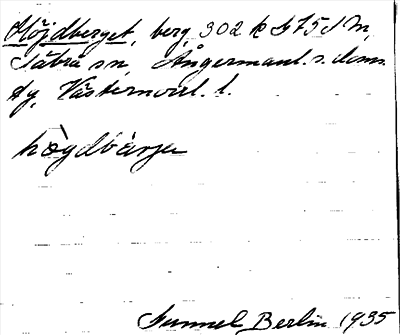 Höjdberget, berg 302 k G 75 S m,
Säbrå sn, Ångermanl. s. doms.
dy, Västernorrl. l.
högdbärje
Gunnel Berlin 1935